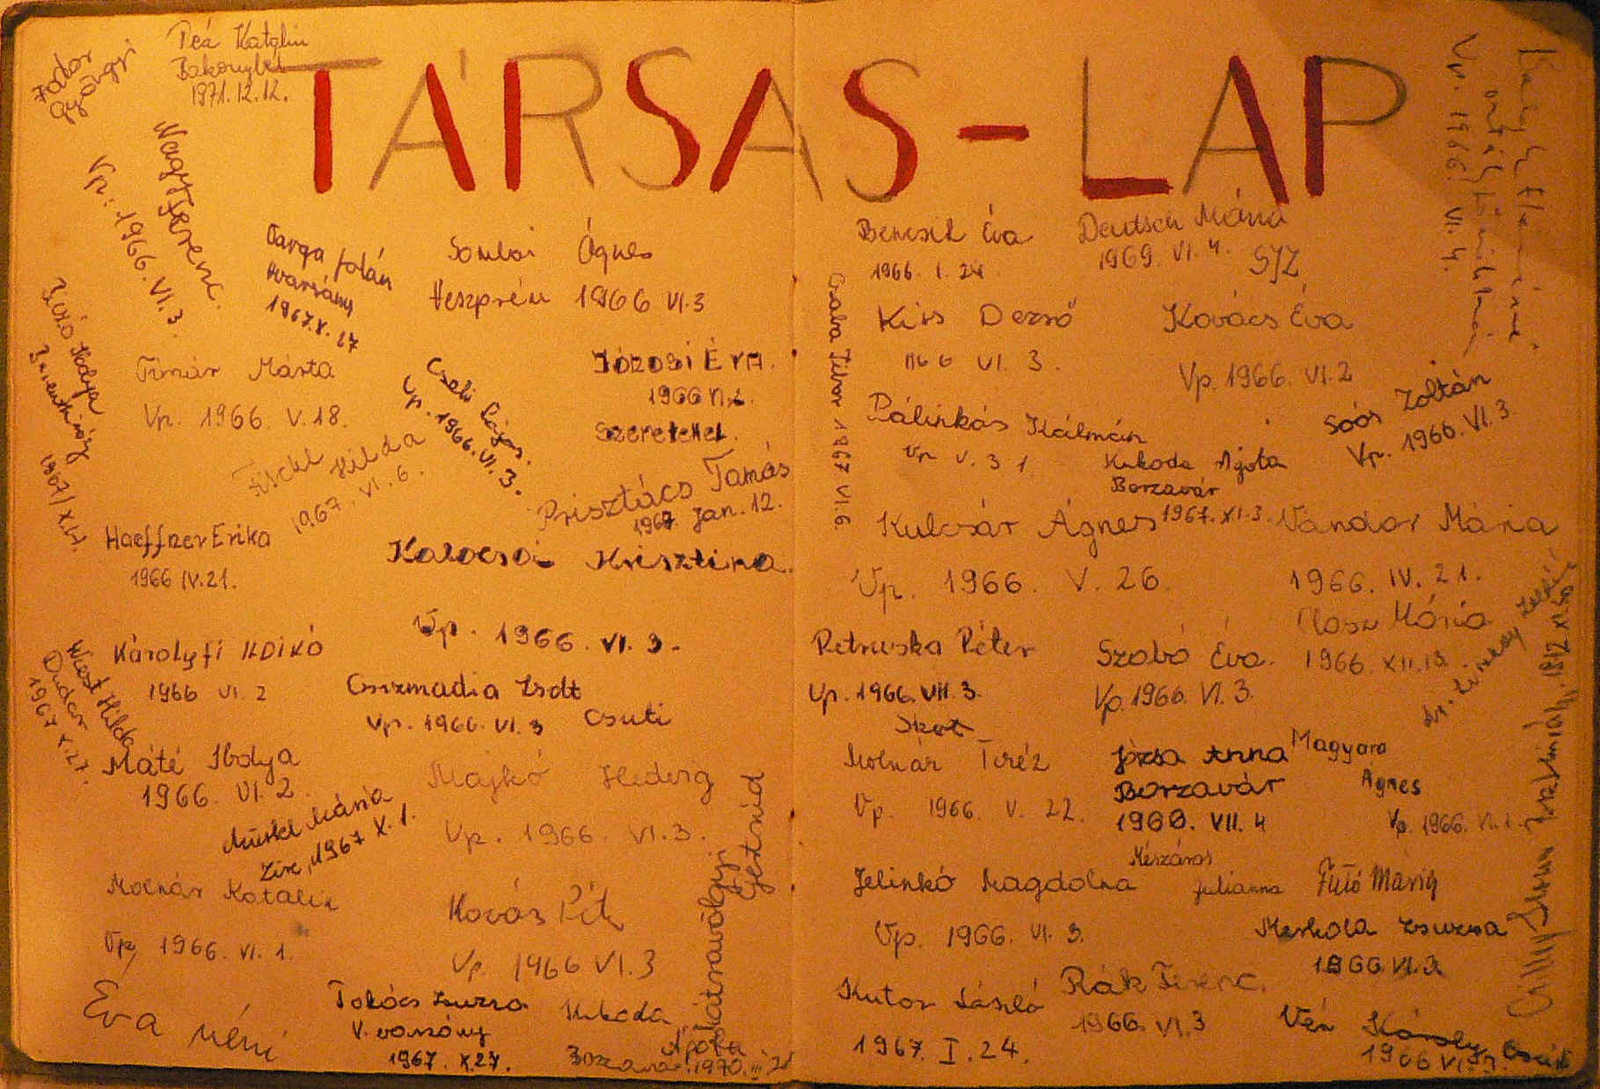 TÁRSAS-LAP
Fodor
Györgyi
Deá Katalin
Bakonybél
1971.12.12.
Nagy Ferenc.
Vp: 1966. VI. 3
Varga Jolán
1967.X.27
Sombai Ágnes
Veszprém 1966 VI.3
Timár Márta
Vp. 1966. V.18.
Cseki Lajos.
Vp. 1966. VI. 3.
Józosi Éva.
1966
Szeretettel.
Fischl Hilda
1967. VI. 6.
Prisztács Tamás
1967 Jan. 12.
Ibolya
1967/X.
Haeffner Erika
1966 IV.21.
Kalocsai Krisztina.
Vp. 1966. VI. 3.
Károlyfi Ildikó
1966 VI. 2
Wiest Hilda
Dudar
1967 X.27.
Csizmadia Zsolt
Vp. 1966. VI. 3 Csuti
Máté Ibolya
1966. VI. 2.
Majkó Hedvig
Vp. 1966. VI. 3.
Mária
Zirc, 1967 X. 1.
Molnár Katalin
Vp 1966. VI. 1.
Kovás Pít
Vp. 1966 VI. 3
Éva néni
Takács Zsuzsa
V. varsány
1967. X.27.
Kukoda
Ágota
Borzavár. 1970. III
Hátsavölgyi
Gertrúd
Bencsik Éva
1966. I. 24.
Deutsch Mária
1969. VI. 4. SJZ
Vp. 1966. VI. 4.
Csaba Tibor 1967. VI.6
Kiss Dezső
1966 VI. 3.
Kovács Éva
Vp. 1966. VI. 2
Pálinkás Kálmán
Vp V. 31.
Soós Zoltán
Vp. 1966. VI. 3.
Kukoda Ágota
Borzavár
1967. XI. 3.
Kulcsár Ágnes
Vp. 1966. V. 26.
Vándor Mária
1966. IV. 21.
Petruska Péter
Vp. 1966. VII. 3.
Szabó Éva.
Vp. 1966. VI. 3.
Mária
1966. XII.
Molnár Teréz
Vp. 1966. V. 22.
Józsa Anna
Borzavár
1960. VII. 4
Magyara
Ágnes
Vp. 1966.
Jelinkó Magdolna
Vp. 1966. VI. 3.
Mészáros
Julianna
Fűtő Mária
Merkola Zsuzsa
1966 VI.3
Kutor László
1967. I. 24.
Rák Ferenc.
1966. VI. 3
Vén Károly
1966 VI. 3.